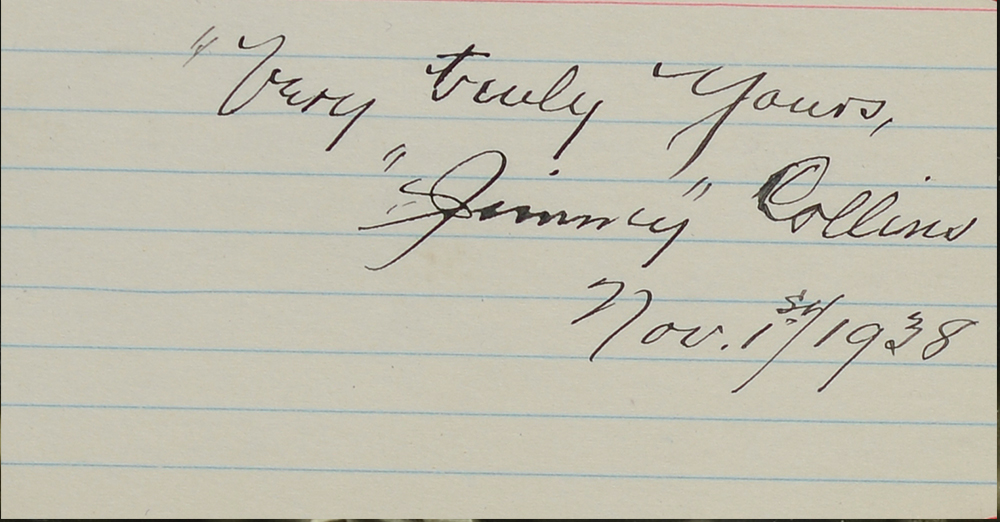 "Very truly Yours,
"Jimmy" Collins
Nov. 1st/1938